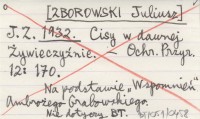 [ZBOROWSKI Juliusz]
J. Z. 1932. Cisy w dawnej
Żywiecczyźnie. – Ochr. Przyr.
12: 170.
Na podstawie „Wspomnień”
Ambrożego Grabowskiego.
Nie dotyczy BT.